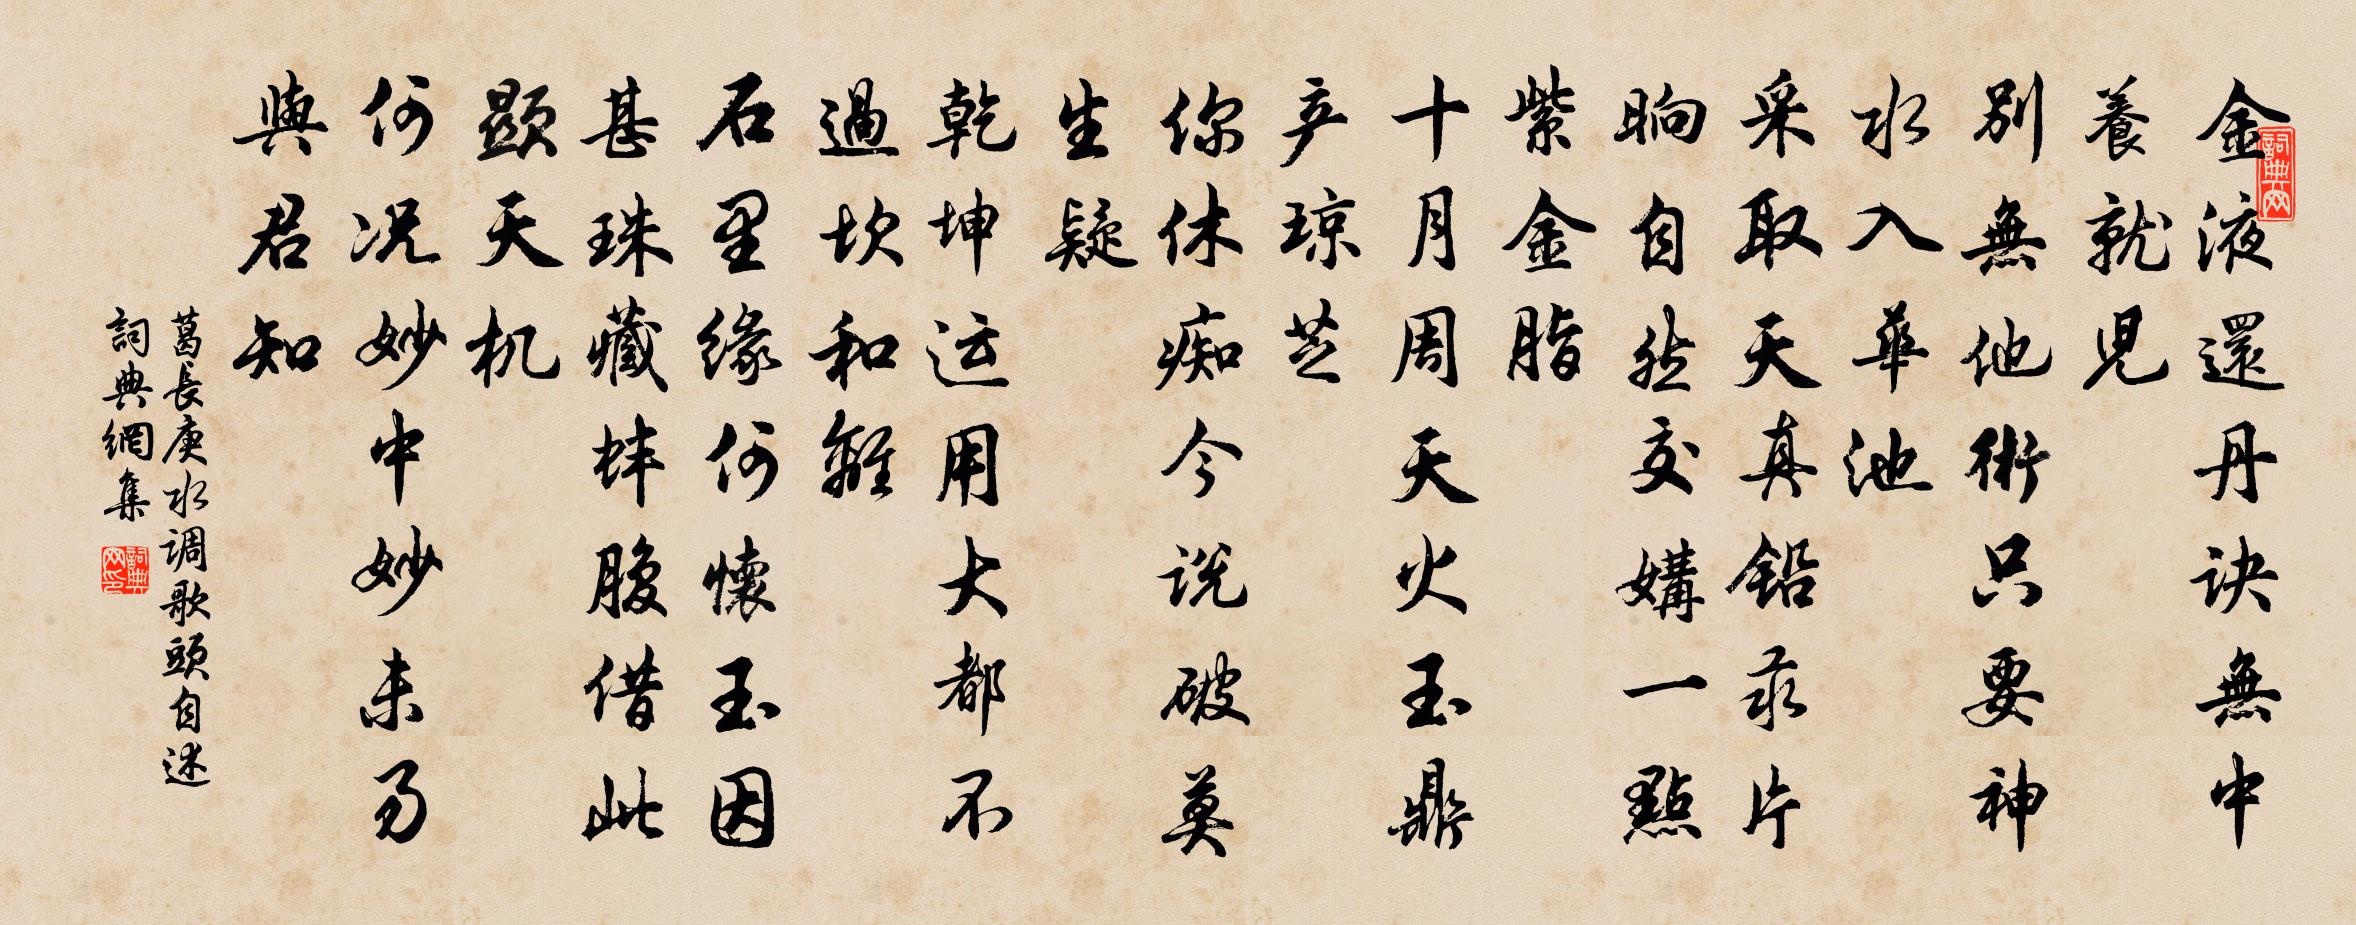 詞典网
金液還丹诀無中
養就児
别無他術只要神
水入華池
采取天真铅汞片
晌自然交媾一點
紫金脂
十月周天火玉鼎
产琼芝
你休痴今说破莫
生疑
乾坤运用大都不
過坎和離
石里缘何懷玉因
甚珠藏蚌腹借此
顕天机
何况妙中妙未易
與君知
葛長庚水调歌頭自述
詞典網集
詞典网印